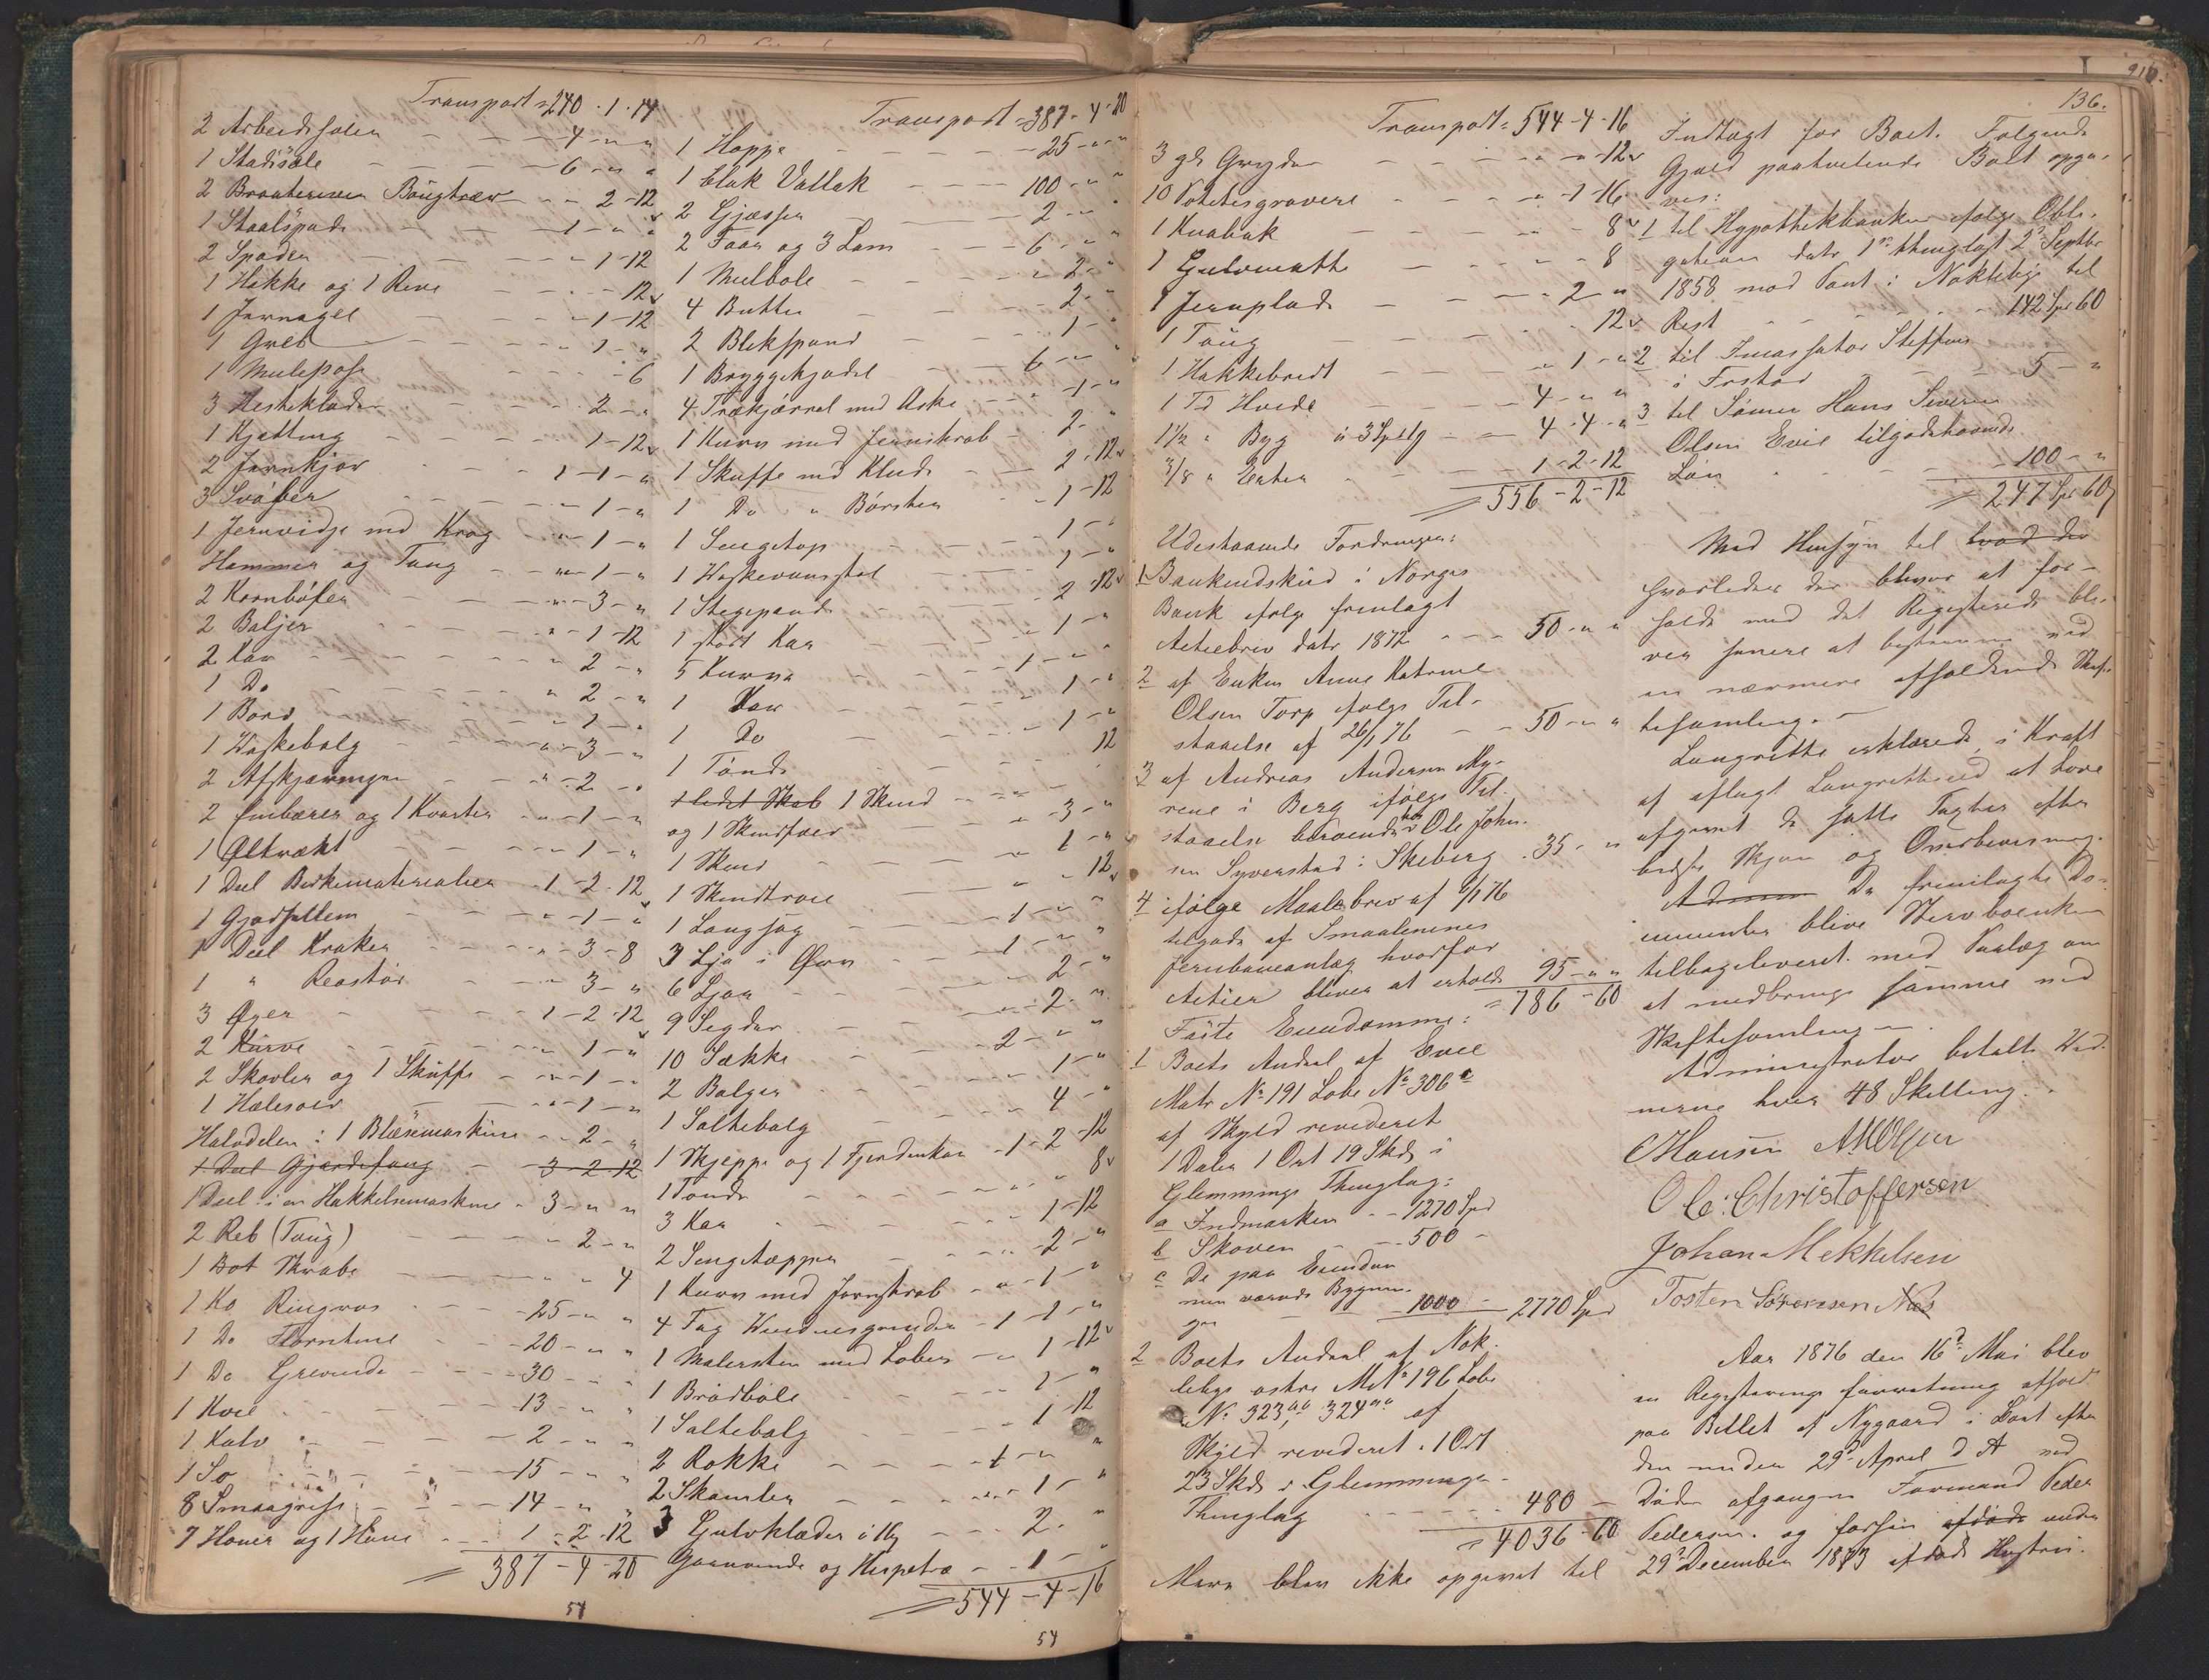 Transport = 240 - 1 - 14
2 Arbeidsseler - 4 - " - "
1 Stadssæle - 6 - " - "
2 Bougtræer - " - 2 - 12
1 Staalspade - 1 - " - "
2 Spader - " - 1 - 12
1 Hakke og 1 Rive - 12
1 Jernagel - 1 - 12
1 Greb - " - 1 - "
1 Mulepose - 6
3 Hestetækkener - 2 - "
1 Kjætting - 1 - 12
2 Jernkjør - 1 - 1 - "
3 Svøber - 1 - "
1 Jernvidje med Krog - " - 1 - "
Hammer og Tang - 1 - "
2 Kornbøser - 3 - "
2 Baljer - " - 1 - 12
2 Kar - " 2 - "
1 Do - " 2 - "
1 Bord - " - 1 - "
1 Vaskebalg - " - 3 - "
2 Afskjæringer - " - 2 - "
2 Embarer og 1 Kvarter - " - 1 - "
1 Øltrækt - " - 1 - "
1 Deel Birkematerialier - 1 - 2 - 12
1 Gjødsellem - " - 1 - "
1 Deel Kraker - " - 3 - 8
1 " Reastør - " 3 - "
3 Øxer - 1 - 2 - 12
2 Kurve - " 1 - "
2 Skovler og 1 Skuffe - " - 1 - "
1 Hælesold - " - 1 - "
Halvdelen i 1 Blæsemaskine - 2 - "
1 Deel Gjærdefang - 3 - 2 - 12
1 Deel i en Hakkelsemaskine - 3 - " - "
2 Reb (Taug) - 2 - "
1 Bot Skrabe - " " 4
1 Ko Ringros - 25 - " - "
1 Do Stjerntine - 20 - " - "
1 Do Greinende - 30 - " - "
1 Kvie - 13 - " - "
1 Kalv - 2 - " - "
1 So - 15 - " - "
8 Smaagrise - 14 - " - "
7 Høner og 1 Hane - 1 - 2 - 12
= 387 - 4 - 20
54
Transport = 387 - 4 - 20
1 Hoppe - 25 - " - "
1 blak Vallak - 100 - " - "
2 Gjæsser - 2 - " - "
2 Faar og 3 Lam - 6 - " - "
1 Melbøle - " 2 - "
4 Butter - 2 - "
2 Blekspand - 1 - "
1 Bryggekjedel - 6 - " - "
4 Trækjørrel med Aske - 1 - "
1 Kurv med Jernskrab - 2 - "
1 Skuffe med Klude - 2 - 12
1 Do " Børster - " - 1 - 12
1 Sengetop - 1 - "
1 Vaskevandsfad - 1 - "
1 Stegepande - 2 - 12
1 stort Kar - " 1 - "
5 Kurve - 1 - " - "
1 Kar - 1 - "
1 Do - " - 1 - "
1 Tønde - 12
1 ledet Skab 1 Skind
og 1 Skindfæld - " - 3 - "
1 Skind - " 1 - "
1 Skindtrøie - " " 12
1 Langsag - 1 - "
3 Lja i Orv - 1 - " - "
6 Ljaa - " 2 - "
9 Segder - " - 2 - "
10 Sække - 2 - " - "
2 Balger - 1 - "
1 Saltebalg - " 4 - "
1 Skjeppe og 1 Fjerdinkar - 1 - 2 - 12
1 Tønde - 8
3 Kar - 1 - 12
2 Sengetæpper - 2 - "
1 Kurv med Jernskrab - " - 1 - "
4 Fag Vinduesgrinder - 1 - 1 - "
1 Malersten med Løber - " 1 - 12
1 Brødbøle - 1 - "
1 Saltebalg - 1 12
2 Rokke - 1 - " - "
2 Skamler - 1 - "
3 Gulvklæder i 1 Kg - 2 - "
Garnvinde og Hespetræ - 1 - "
= 544 - 4 - 16
54
910.
136.
Transport = 544 - 4 - 16
3 gl. Gryder - " - " - 12
10 Potetesgravere - " - 1 - 16
1 Knabak - " 8
1 Gulvmatte - 8
1 Jernplade - 2 - "
1 Taug - 12
1 Hakkebredt - " 1 - "
1 Td Hvede - 4 - " - "
1½ " Byg a 3 Spd - 4 - 4 - "
3/8 " Erter - 1 - 2 - 12
= 556 - 2 - 12
Udestaaende Fordringer:
1 Bankindskud i Norges
Bank ifølge fremlagt
Actiebrev datr 1872 - 50 - " "
2 af Enken Anne Katrine
Olsen Torp ifølge Til-
staaelse af 26/1 76 - 50 - " "
3 af Andreas Andersen My-
rene i Berg ifølge Til-
staaelse beroende hos Ole John-
sen Syverstad i Skeberg - 35 - "
4 ifølge Maalebrev af 6/1 76
tilgode af Smaalenenes
Jernbaneanlæg hvorfor
Actier bliver at erholde 95 - " "
= 786 - 60
Faste Eiendomme:
1 Boets Andeel af Evie
Matr No 191 Løbe No 306a
af Skyld revideret
1 Daler 1 Ort 19 Skl i
Glemminge Thinglag:
a Indmarken - 1270 Spd
b Skoven - 500 -
c De paa Eiendom-
men værende Bygnin-
ger - 1000 - 2770 Spd
2 Boets Andeel af Nok-
leby østre M No 196 Løbe
No 323aa, 324aa af
Skyld revideret 1 Ort
23 Skl i Glemminge
Thinglag - 480 -
= 4036 - 60
Mere blev ikke opgivet til
Indtægt for Boet. Følgende
Gjæld paahvilende Boet opga-
ves:
1 til Hypothekbanken ifølge Obli-
gation datr 1ste thinglæst 2den Septbr
1858 mod Pant i Nokleby til
Rest - 142 Spd 60
2 til Incassator Steffens
i Frstad - 5 - "
3 til Sønnen Hans Severin
Olsen Evie tilgodehavende
Løn - 100 - "
= 247 Spd 60
Med Hensyn til hvad der
hvorledes der bliver at for-
holde med det Registerede bli-
ver senere at bestemme ved
en nærmere afholdende Skif-
tesamling. -
Laugrette erklærede, i Kraft
af aflagt Laugretteed at have
afgivet de satte Taxter efter
bedste Skjøn og Overbevisning.
De fremlagte Do-
cumenter blive Stervboenken
tilbageleveret med Paalæg om
at medbringe samme ved
Skiftesamling -
Administrator betalte Vid-
nerne hver 48 Skilling.
CHansen AKOlsen
Ole Christoffersen
Johan Mekkelsen
Tosten Sörensen Næs
Aar 1876 den 16de Mai blev
en Registerings forretning afhold
paa Billet af Nygaard i Boet efter
den under 29de April d. A. ved
Døden afgangne Formand Peder
Pedersen. og hossen afdøde under
29de December 1873 afdøde Hustru.